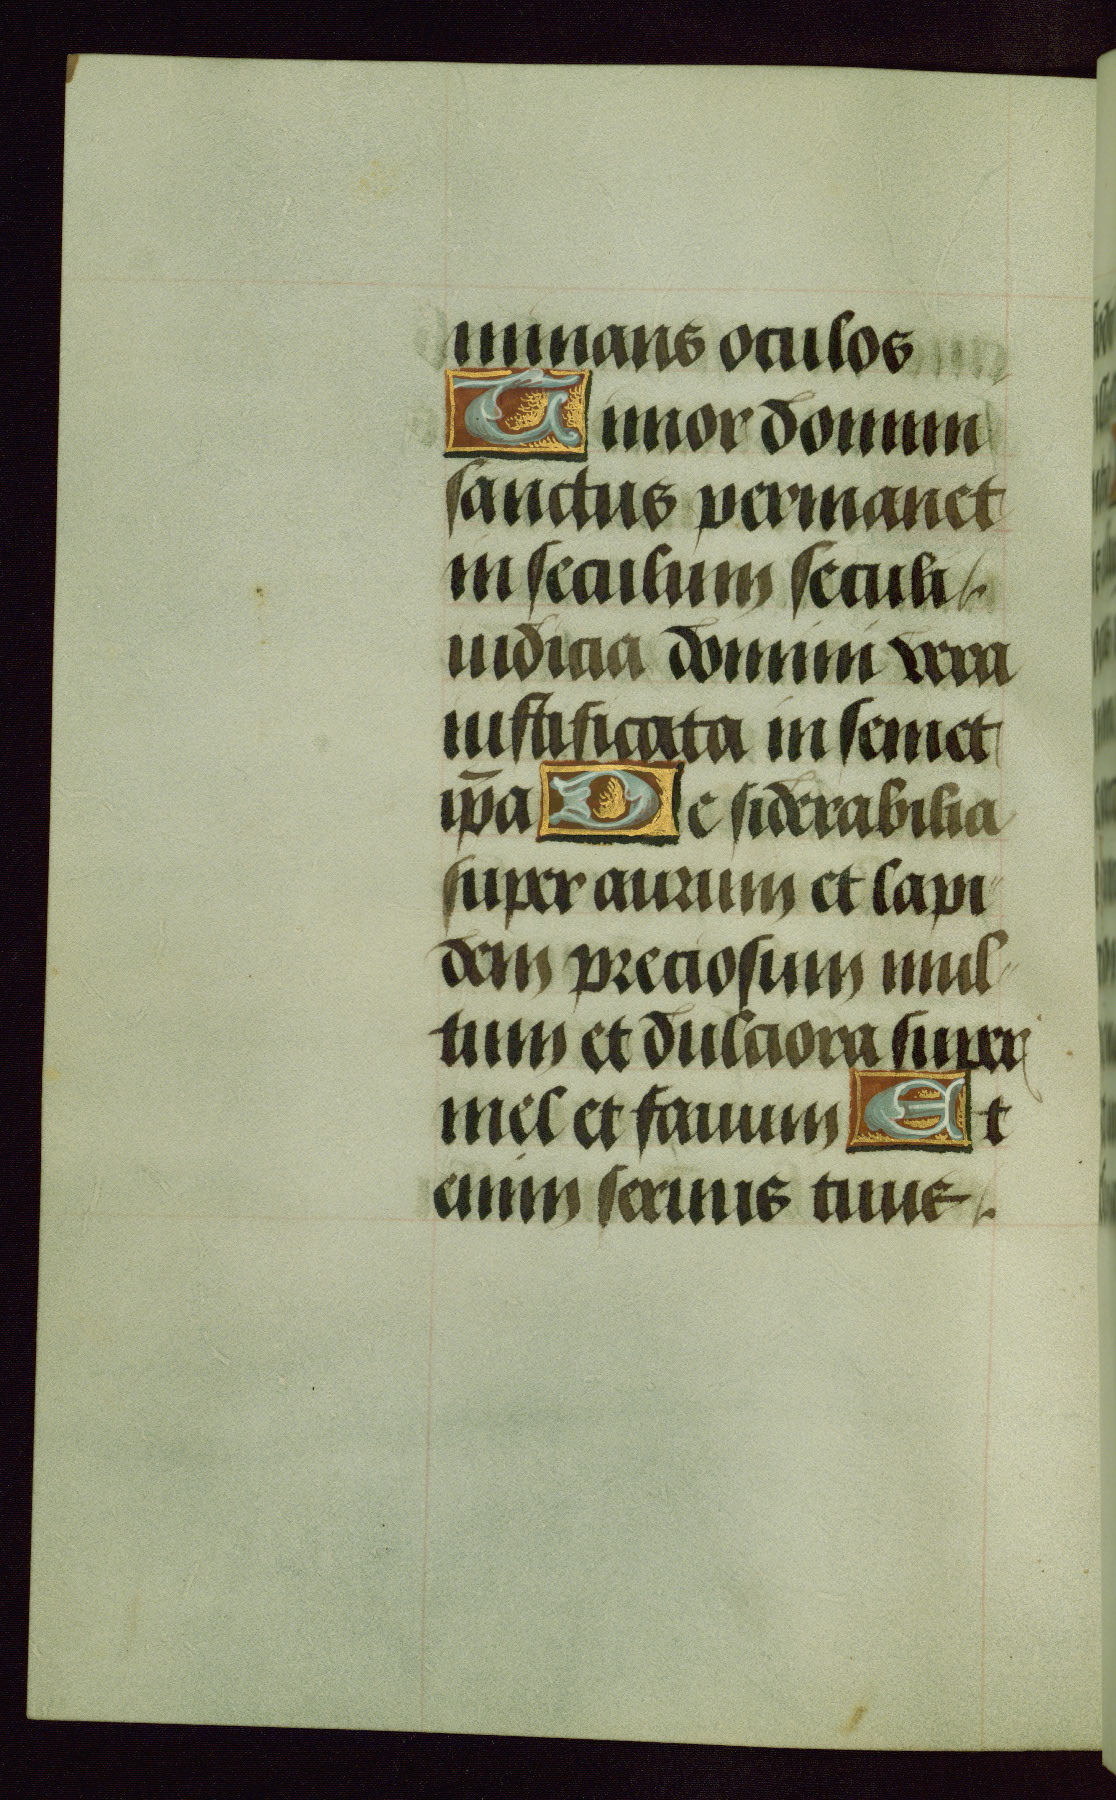 minans oculos
Timor domini
sanctus permanet
in seculum seculi
iudicia domini vera
iustificata in semet
ip̄a Desiderabilia
super aurum et lapi
dem preciosum mul
tum et dulciora super
mel et fauum Et
enim seruus tuus